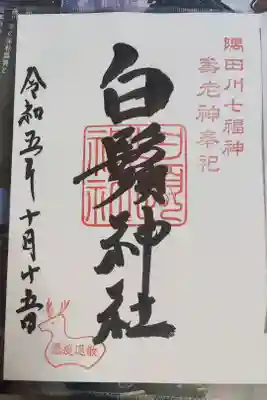 隅田川七福神
壽老神奉祀
白鬚神社
令和五年十月十五日